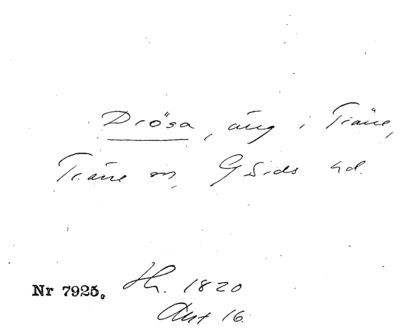 Drösa, äng i Träne,
Träne sn, Gärds hd.
Nr 7925. Hh. 1820
Akt 16.